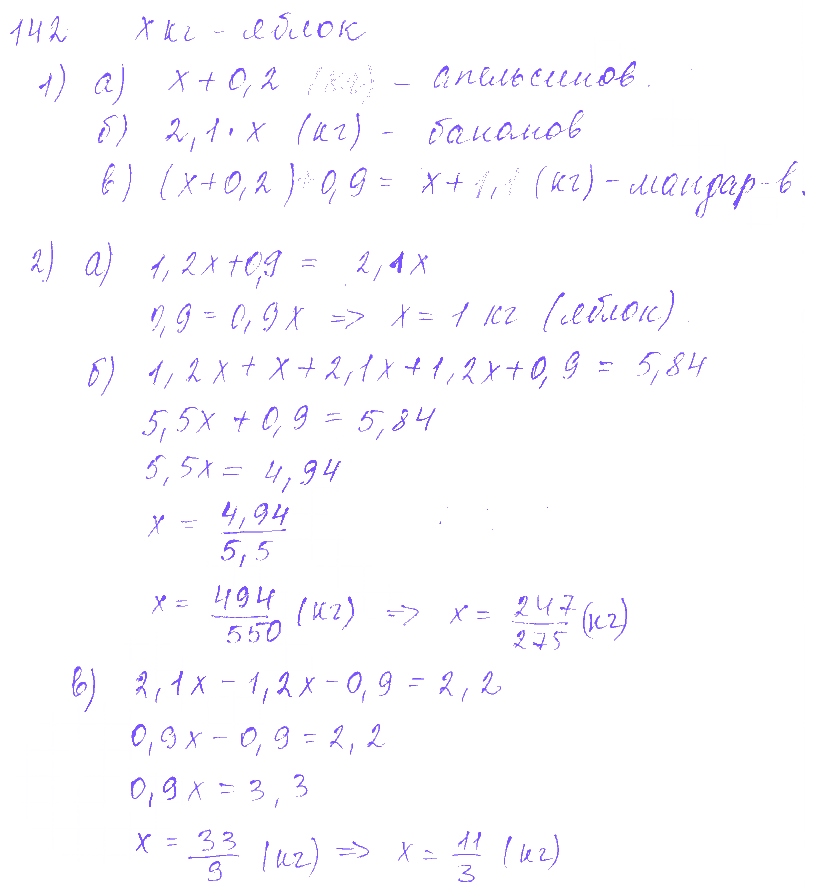 142 x кг - яблок
1) а) x + 0,2 (кг) - апельсинов.
б) 2,1 · x (кг) - бананов
в) (x+0,2)+0,9 = x + 1,1 (кг) - мандар-в.
2) а) 1,2x+0,9 = 2,1x
0,9 = 0,9x => x = 1 кг (яблок)
б) 1,2x + x + 2,1x + 1,2x + 0,9 = 5,84
5,5x + 0,9 = 5,84
5,5x = 4,94
x = 4,94/5,5
x = 494/550 (кг) => x = 247/275 (кг)
в) 2,1x - 1,2x - 0,9 = 2,2
0,9x - 0,9 = 2,2
0,9x = 3,3
x = 33/9 (кг) => x = 11/3 (кг)